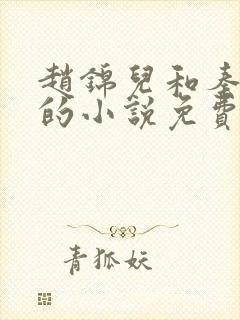 趙錦兒和秦
的小說免費
青狐妖